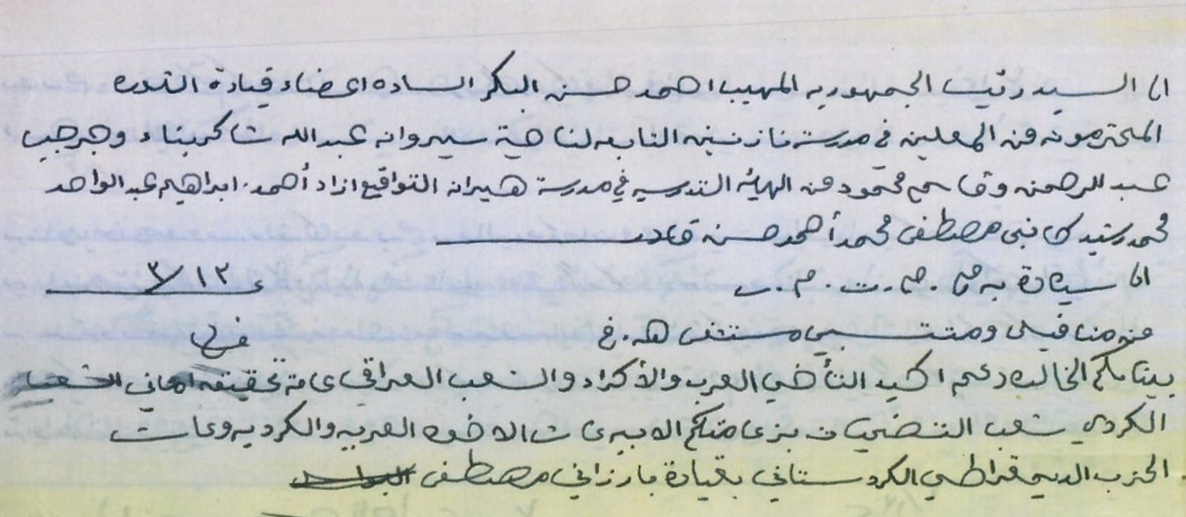 الى السيد رئيس الجمهوريه المهيب احمد حسن البكر الساده اعضاء قيادة الثوره
المحترمون من المعلمين في مدرسة نازنين التابعه لناحية سيروان عبد الله شاكر بناء و هرجيب
عبد الرحمن وقاسم محمود من الهيئه التدريسيه في مدرسة هيران التواقيع ازاد أحمد. ابراهيم عبد الواحد
محمد رشيد كانبي مصطفى محمد أحمد حسن قادر
الى سيادة
٣/١٢
من منافيلي ومنتسبي مستشفى هـ. ع
بيناكم الخالد دعم اكيد التأخي العرب والأكراد والشعب العراقي عامة تحقيقه اماني الشعب
الكردي شعب التضحيات بزعامتكم الابيه عاشت الاخوه العربيه والكرديه وعاش
الحزب الديمقراطي الكردستاني بقيادة بارزاني مصطفى